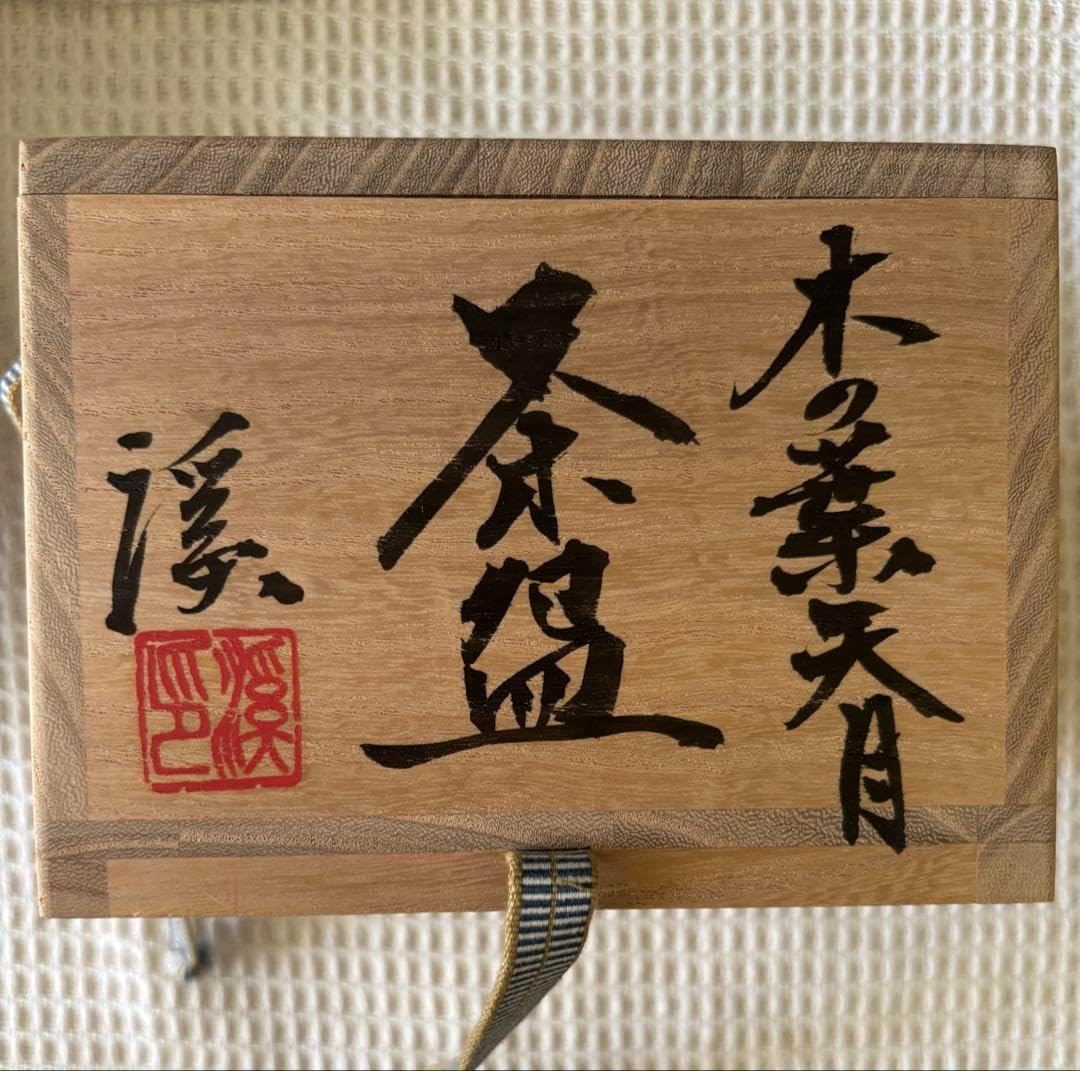 木の葉天目
茶盌
溪
溪印